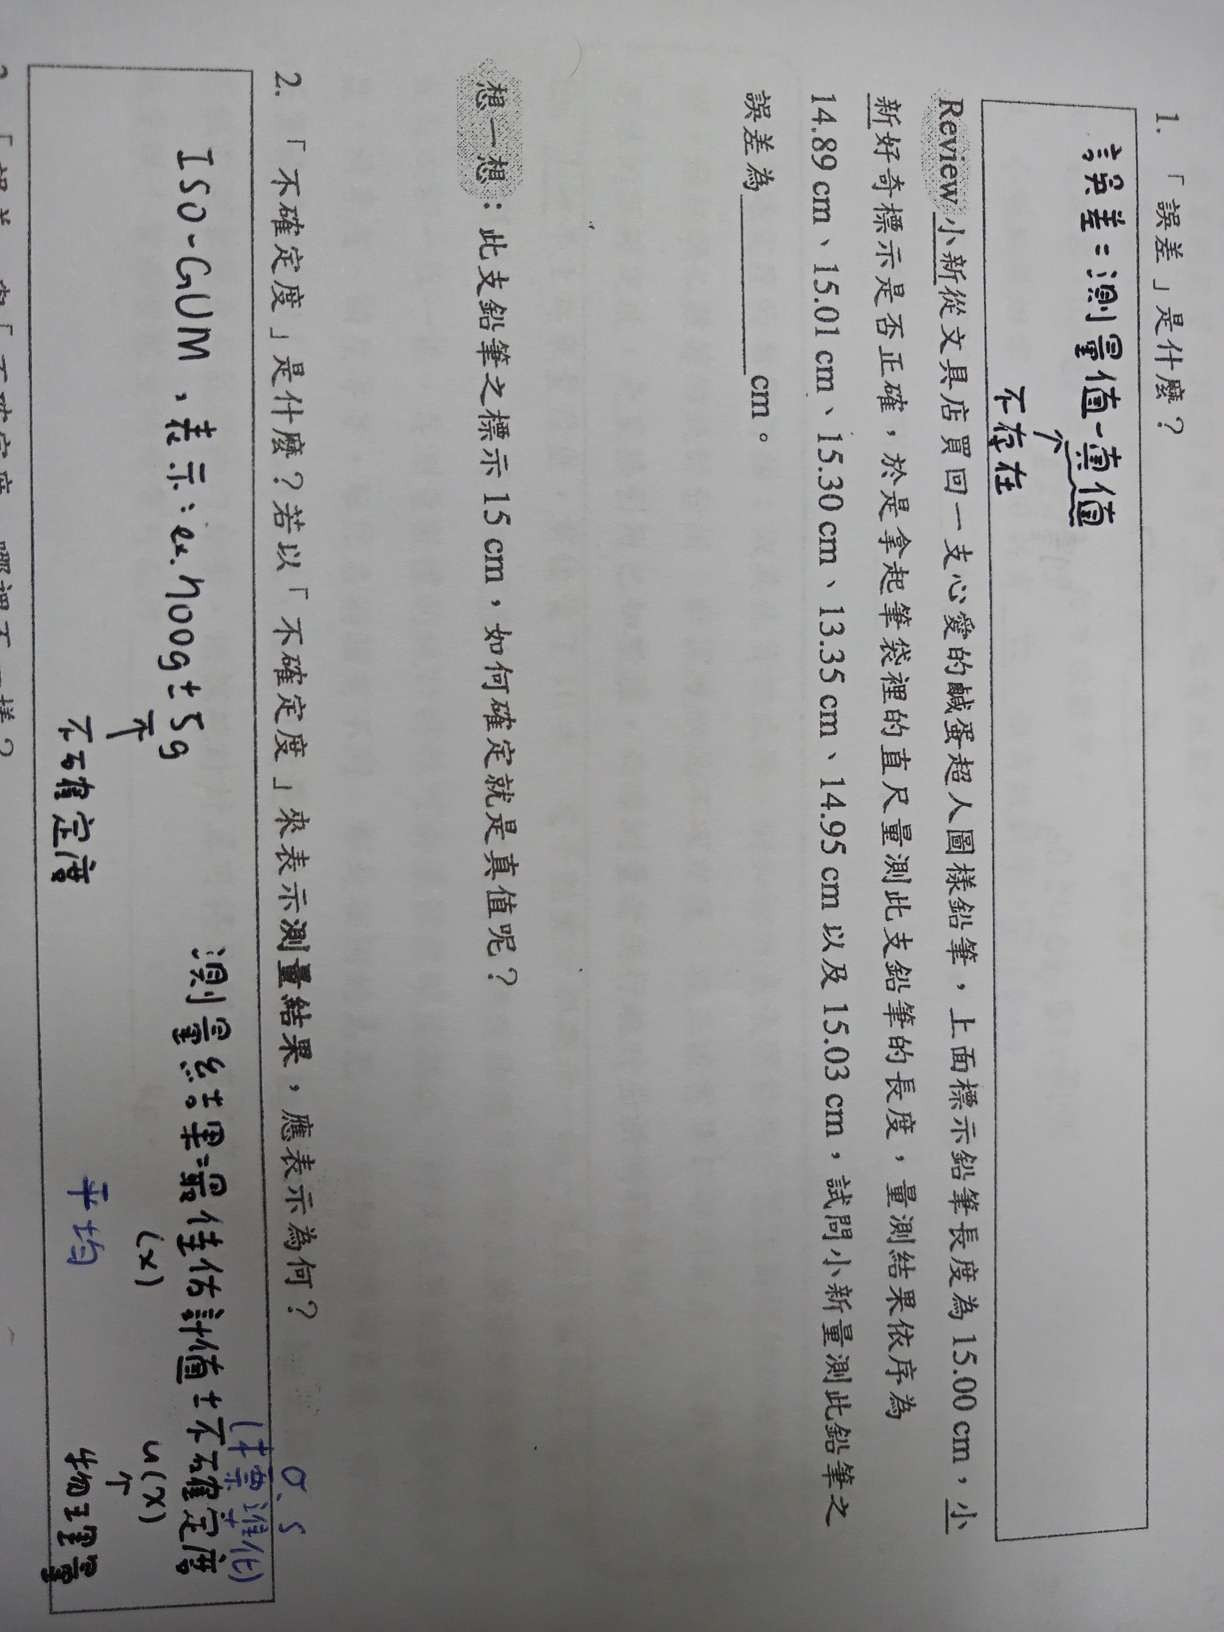 1. 「誤差」是什麼？
誤差：測量值-真值
不存在
Review 小新從文具店買回一支心愛的鹹蛋超人圖樣鉛筆，上面標示鉛筆長度為 15.00 cm，小
新好奇標示是否正確，於是拿起筆袋裡的直尺量測此支鉛筆的長度，量測結果依序為
14.89 cm、15.01 cm、15.30 cm、13.35 cm、14.95 cm 以及 15.03 cm，試問小新量測此鉛筆之
誤差為________cm。
想一想：此支鉛筆之標示 15 cm，如何確定就是真值呢？
2. 「不確定度」是什麼？若以「不確定度」來表示測量結果，應表示為何？
σ、s
(標準化)
ISO-GUM，表示：ex. 700g ± 5g
不確定度
測量結果：最佳估計值 ± 不確定度
(x)
u(x)
平均
物理量